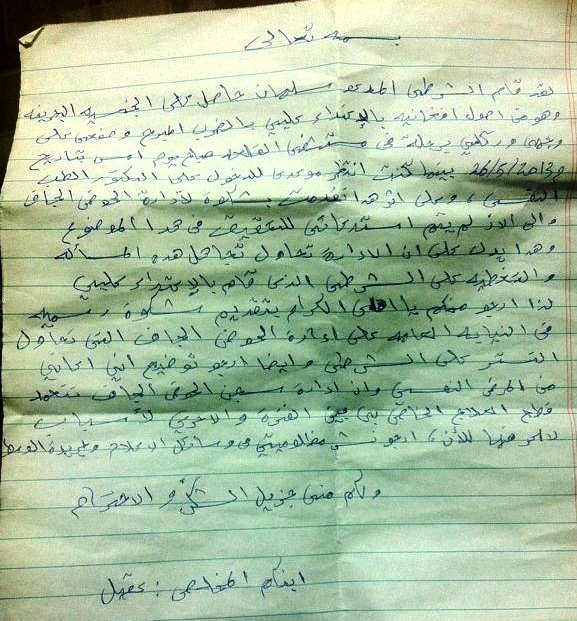 بسمه تعالى
لقد قام الشرطي المدعو سليمان حاصل على الجنسيه البحرينه
وهو من اصول افغانيه بالإعتداء عليي بالضرب المبرح وصفعي على
وجهي وركلي برجله في مستشفى القلعه صباح يوم امس بتاريخ
26/5/2013م بينما كنت انتظر موعدي للدخول على الدكتور الطب
النفسي، وعلى اثر هذا تقدمت بشكوة لإدارة الحوض الجاف
والى الآن لم يتم استدعائي للتحقيق في هذا الموضوع
وهذا يدل على ان الادارة تحاول تجاهل هذه المسأله
والتغطيه على الشرطي الذي قام بالإعتداء عليي
لذا ارجو منكم يا اهلي الكرام بتقديم شكوة رسميه
في النيابه العامه على إدارة الحوض الجاف التي تحاول
التستر على الشرطي وايضا ارجو توضيح انني اعاني
من المرض النفسي وان إدارة سجن الحوض الجاف تتعمد
قطع العلاج الخاص بي بين الفترة والاخرى لأسباب
لا اعرفها للأن، ارجو نشر مظلوميتي في وسائل الاعلام وجريدة الوسط
ولكم مني جزيل الشكر والاحترام
ابنكم المخلص: عقيل